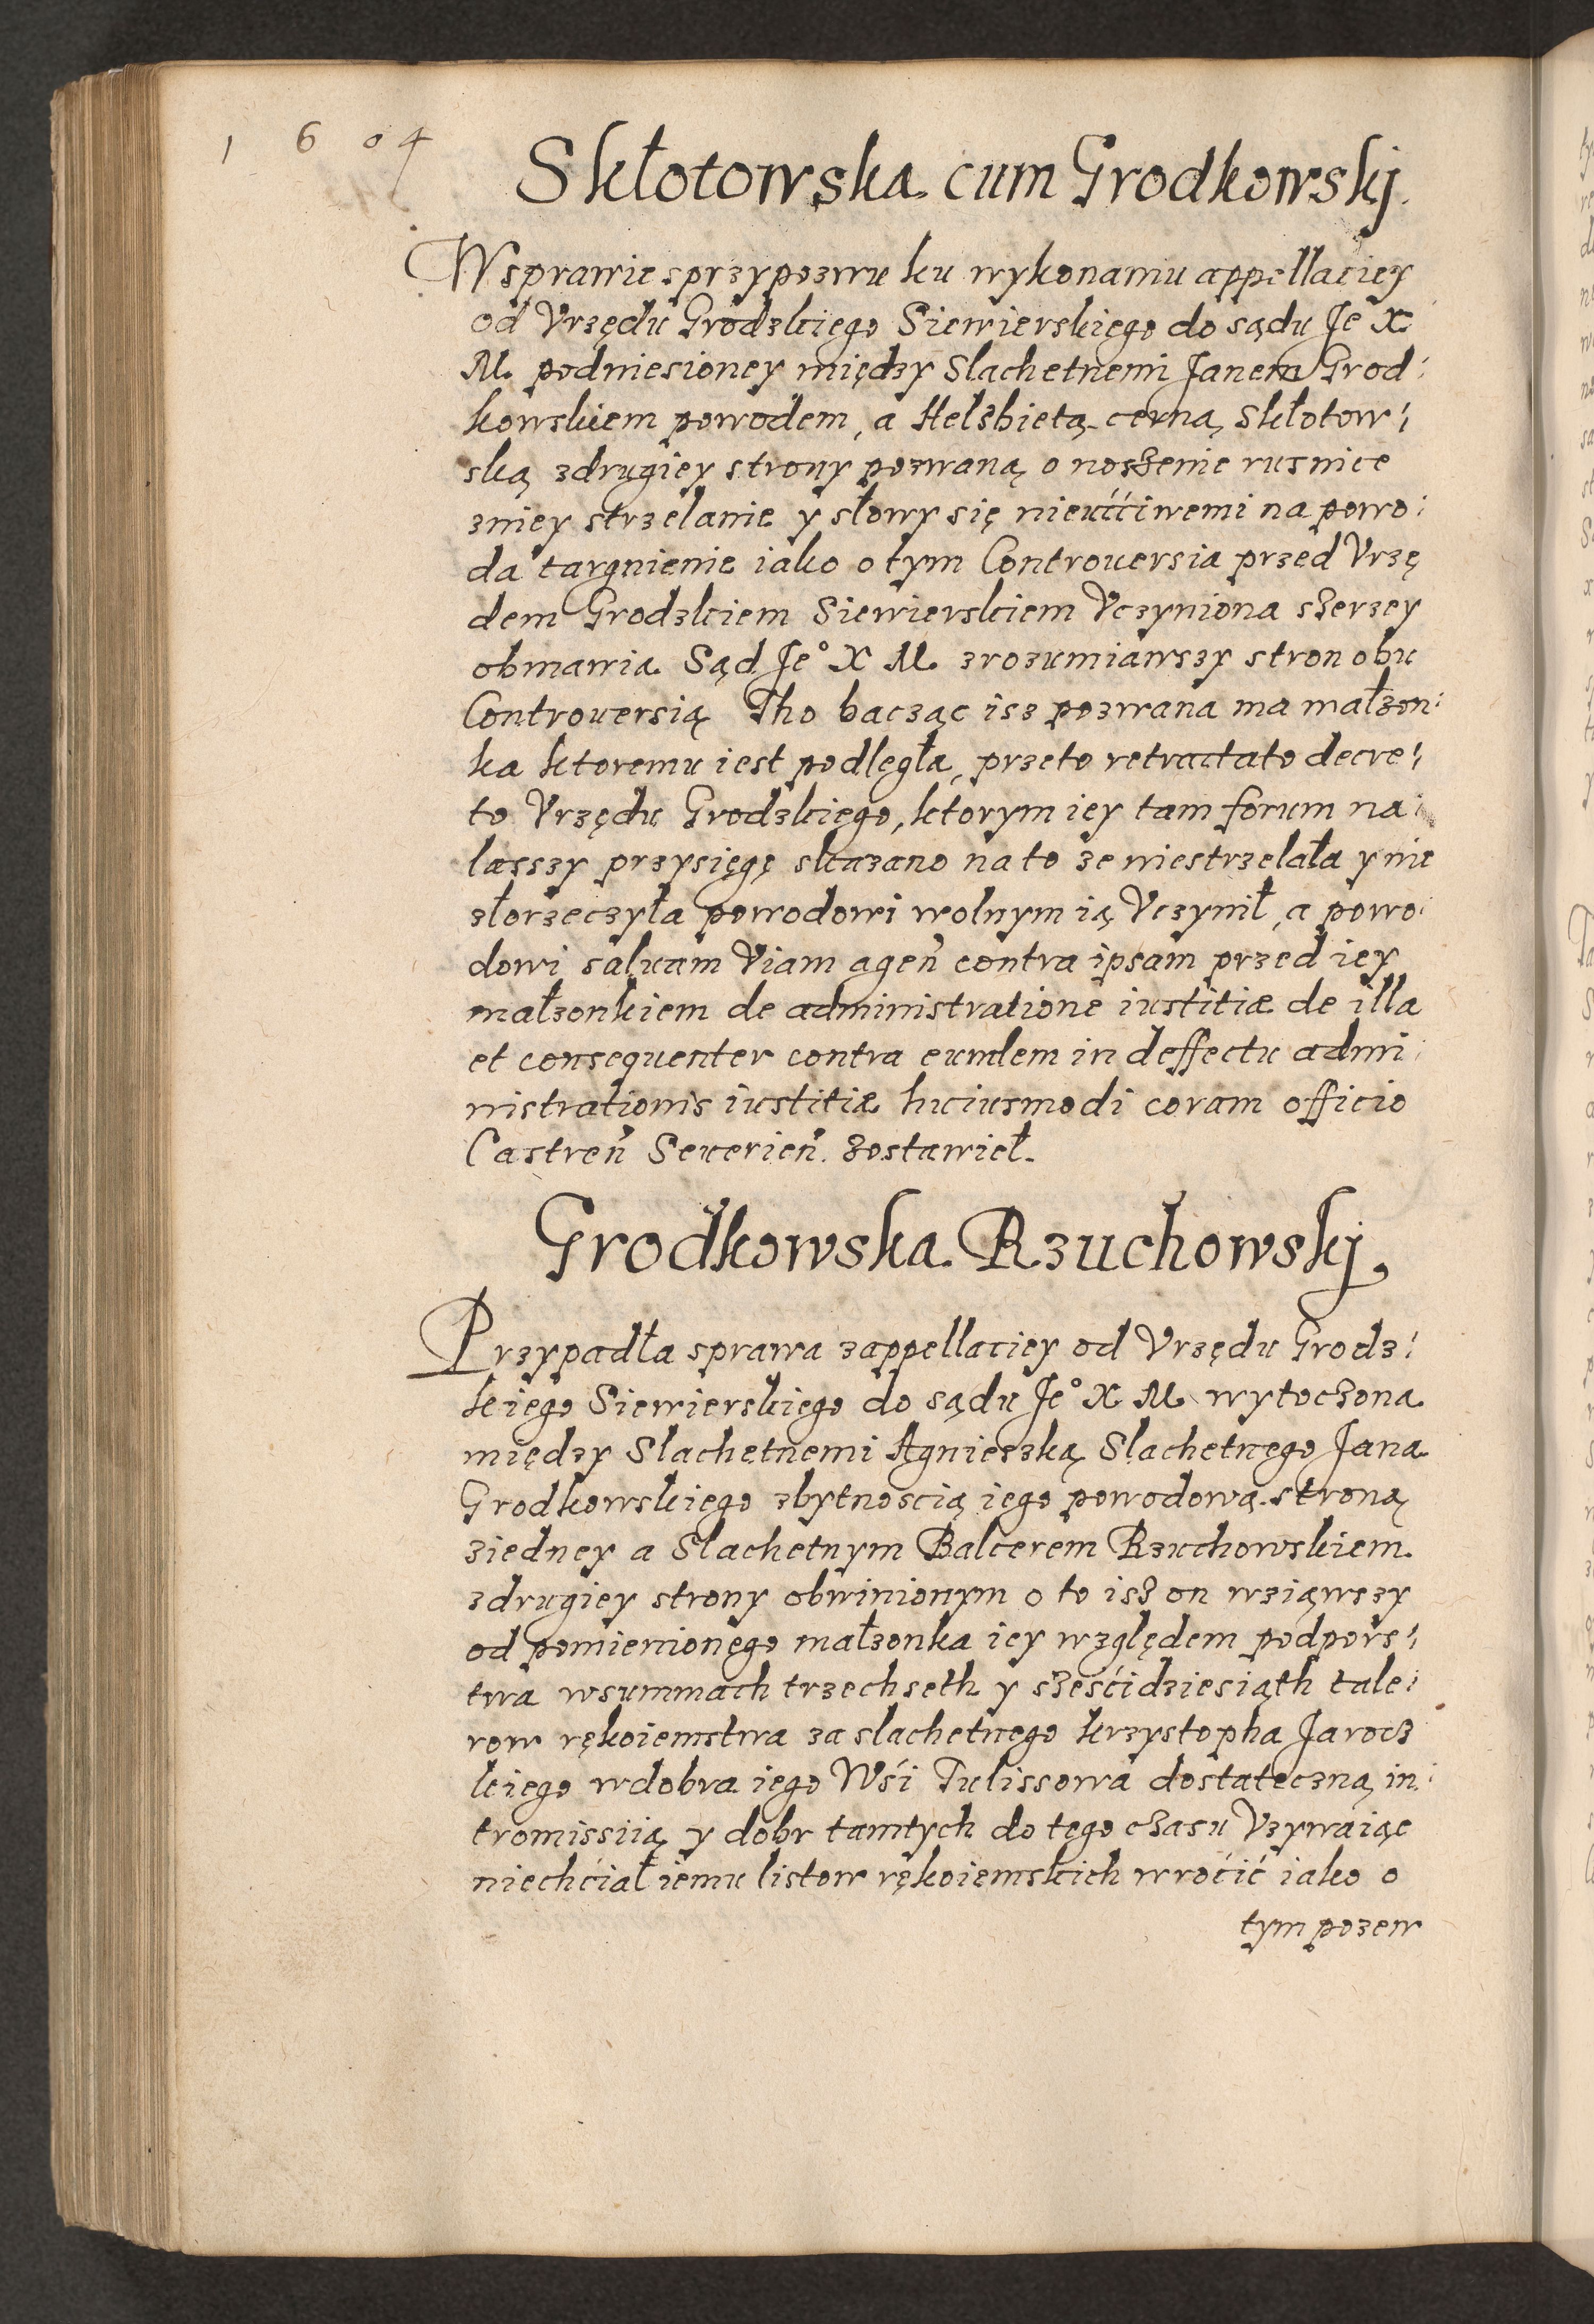 1 6 0 4
Skłotowska cum Grodkowskj.
W sprawie sprzypozwu ku wykonaniu appellaciey
od Vrzędu Grodzkiego Siewierskiego do sądu Je X
M. podniesioney między Slachetnemi Janem Grod:
kowskiem powodem, a Helżbietą cerną Skłotow:
ską zdrugiey strony pozwaną o noszenie rusnice
zniey strzelanie y słowy się nieuććiwemi na powo:
da targnienie iako o tym Controuersia przed Vrzę
dem Grodzkiem Siewierskiem Vczyniona szerzey
obmawia. Sąd Je° X M. zrozumiawszy stron obu
Controuersią Tho bacząc isz pozwana ma małżon:
ka ktoremu iest podległa, przeto retractato decre:
to Vrzędu Grodzkiego, ktorym iey tam forum na:
lasszy przysięgę skazano na to ze niestrzelała y nie
złorzeczyła powodowi wolnym ią Vczynił, a powo:
dowi saluam Viam ageñ contra ipsam przed iey
małzonkiem de administratione iustitiæ de illa
et consequenter contra eundem in deffectu admi:
nistrationis iustitiæ huiusmodi coram officio
Castreñ Seuerieñ. zostawieł.
Grodkowska Rzuchowskj.
Przypadła sprawa zappellaciey od Vrzędu Grodz:
kiego Siewierskiego do sądu Je° X M. wytoczona
między Slachetnemi Agnieszką Slachetnego Jana
Grodkowskiego zbytnoscią iego powodową stroną
ziedney a Slachetnym Balcerem Rzuchowskiem
zdrugiey strony obwinionym o to isz on wziąwszy
od pomienionego małzonka iey względem podpors:
twa wsummach trzechseth y sześćidziesiąth tale:
row rękoiemstwa za slachetnego krzystopha Jarocz
kiego wdobra iego Wśi Tulissowa dostateczną in:
tromissiią y dobr tamtych do tego czasu Vzywaiąc
niechćiał iemu listow rękoiemskich wroćić iako o
tym pozew